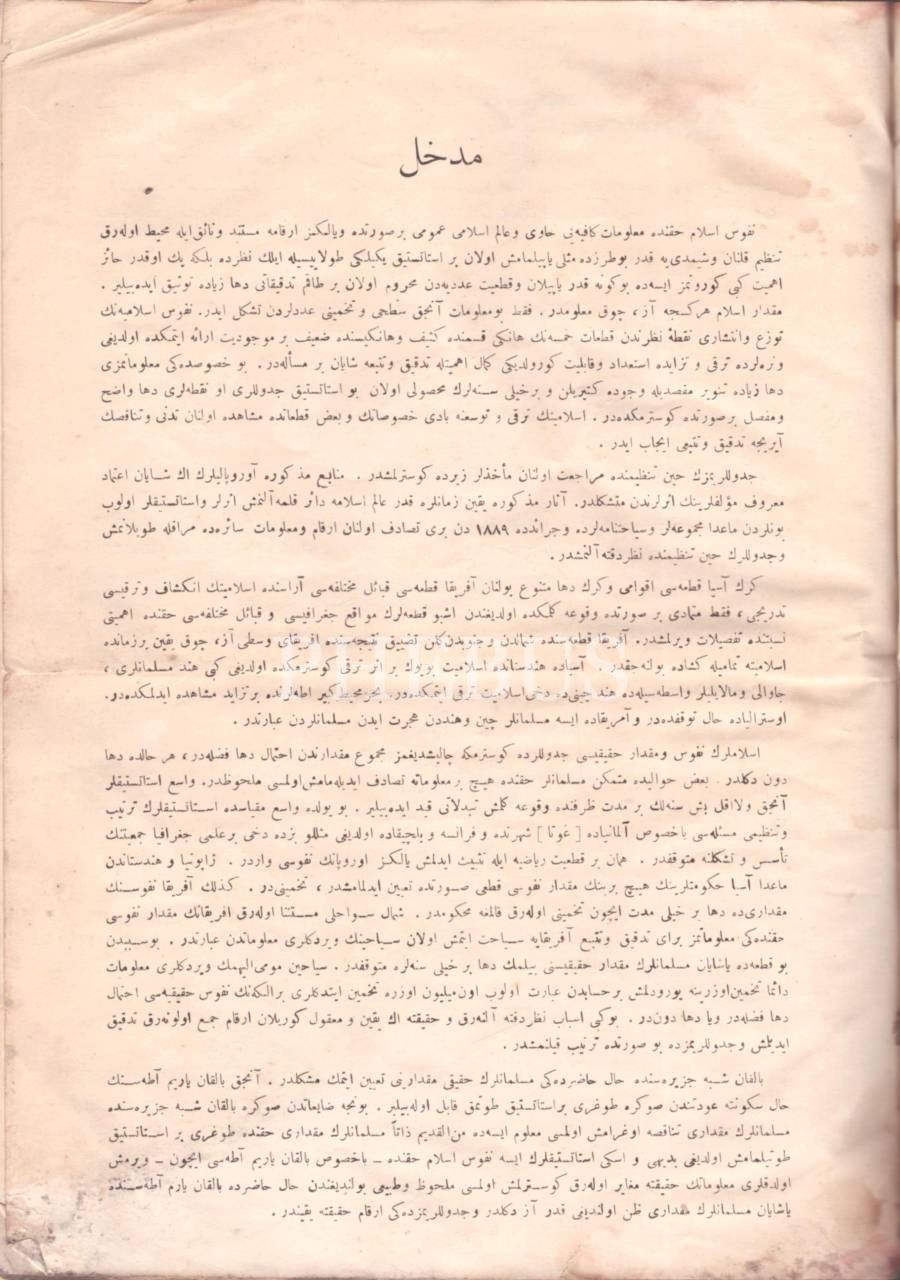 مدخل
نفوس اسلام حقنده معلومات كافیه‌یی حاوی و عالم اسلامی عمومی بر صورتده و یالكز ارقامه مستند وثائق ایله محیط اوله‌رق
تنظیم قلنان و شیمدی‌یه قدر بو طرزده مثلی یاپیلمامش اولان بر استاتستیق یكیلكی طولاییسیله ایلك نظرده بلكه پك اوقدر حائز
اهمیت كبی كورونمز ایسه‌ده بوكونه قدر یاپیلان و قطعیت عددیه‌دن محروم اولان بر طاقم تدقیقاتی دها زیاده توثیق ایده‌بیلیر .
مقدار اسلام هركسجه آز ، چوق معلومدر . فقط بو معلومات آنجق سطحی و تخمینی عددلردن تشكل ایدر . نفوس اسلامیه‌نك
توزع و انتشاری نقطهٔ نظرندن قطعات خمسه‌نك هانكی قسمنده كثیف و هانكیسنده ضعیف بر موجودیت ارائه ایتمكده اولدیغی
و نره‌لرده ترقی و تزایده استعداد و قابلیت كورولدیكی كمال اهمیتله تدقیق و تتبعه شایان بر مسأله‌در . بو خصوصده‌كی معلوماتمزی
دها زیاده تنویر مقصدیله وجوده كتیریلن و برخیلی سنه‌لرك محصولی اولان بو استاتستیق جدوللری او نقطه‌لری دها واضح
و مفصل بر صورتده كوسترمكده‌در . اسلامیتك ترقی و توسعنه بادی خصوصاتك و بعض قطعاتده مشاهده اولنان تدنی و تناقصك
آیریجه تدقیق و تتبعی ایجاب ایدر .
جدوللریمزك حین تنظیمنده مراجعت اولنان مأخذلر زیرده كوسترلمشدر . منابع مذكوره آوروپالیلرك اك شایان اعتماد
معروف مؤلفلرینك اثرلرندن متشكلدر . آثار مذكوره یقین زمانلره قدر عالم اسلامه دائر قلمه آلنمش اثرلر و استاتستیقلر اولوب
بونلردن ماعدا مجموعه‌لر و سیاحتنامه‌لرده و جرائدده ۱۸۸۹ دن بری تصادف اولنان ارقام و معلومات سائره‌ده مراقله طوپلانمش
و جدوللرك حین تنظیمنده نظردقته آلنمشدر .
كرك آسیا قطعه‌سی اقوامی و كرك دها متنوع بولنان آفریقا قطعه‌سی قبائل مختلفه‌سی آراسنده اسلامیتك انكشاف و ترقیسی
تدریجی ، فقط متمادی بر صورتده وقوعه كلمكده اولدیغندن اشبو قطعه‌لرك مواقع جغرافیسی و قبائل مختلفه‌سی حقنده اهمیتی
نسبتنده تفصیلات ویرلمشدر . آفریقا قطعه‌سنده شمالدن و جنوبدن كلن تضییق نتیجه‌سنده افریقای وسطی آز ، چوق یقین برزمانده
اسلامیته تمامیله كشاده بولنه‌جقدر . آسیاده هندستانده اسلامیت بویوك بر اثر ترقی كوسترمكده اولدیغی كبی هند مسلمانلری ،
جاوالی و مالایلیلر واسطه‌سیله‌ده هند چینی‌ده دخی اسلامیت ترقی ایتمكده‌در . بحر محیط كبیر اطه‌لرنده بر تزاید مشاهده ایدلمكده‌در .
اوسترالیاده حال توقفده‌در و آمریقاده ایسه مسلمانلر چین و هنددن هجرت ایدن مسلمانلردن عبارتدر .
اسلاملرك نفوس و مقدار حقیقیسی جدوللرده كوسترمكه چالیشدیغمز مجموع مقدارندن احتمال دها فضله‌در ، هر حالده دها
دون دكلدر . بعض حوالیده متمكن مسلمانلر حقنده هیچ بر معلوماته تصادف ایدیله‌مامش اولمسی ملحوظدر . واسع استاتستیقلر
آنجق ولااقل بش سنه‌لك بر مدت ظرفنده وقوعه كلمش تبدلاتی قید ایده‌بیلیر . بو یولده واسع مقیاسده استاتستیقلرك ترتیب
و تنظیمی مسئله‌سی باخصوص آلمانیاده [ غوتا ] شهرنده و فرانسه و بلچیقاده اولدیغی مثللو بزده دخی بر علمی جغرافیا جمعیتنك
تأسس و تشكلنه متوقفدر . همان بر قطعیت ریاضیه ایله تثبیت ایدلمش یالكز اوروپانك نفوسی واردر . ژاپونیا و هندستاندن
ماعدا آسیا حكومتلرینك هیچ برینك مقدار نفوسی قطعی صورتده تعیین ایدلمامشدر ، تخمینی‌در . كذلك آفریقا نفوسنك
مقداری‌ده دها بر خیلی مدت ایچون تخمینی اوله‌رق قالمغه محكومدر . شمال سواحلی مستثنا اوله‌رق افریقانك مقدار نفوسی
حقنده‌كی معلوماتمز برای تدقیق و تتبع آفریقایه سیاحت ایتمش اولان سیاحینك ویردكلری معلوماتدن عبارتدر . بوسببدن
بو قطعه‌ده یاشایان مسلمانلرك مقدار حقیقیسنی بیلمك دها بر خیلی سنه‌لره متوقفدر . سیاحین مومی‌الیهمك ویردكلری معلومات
دائما تخمین اوزرینه یورودلمش برحسابدن عبارت اولوب اون میلیون اوزره تخمین ایتدكلری بر الكه‌نك نفوس حقیقیه‌سی احتمال
دها فضله‌در ویا دها دون‌در . بوكبی اسباب نظردقته آلنه‌رق و حقیقته اك یقین و معقول كوریلان ارقام جمع اولونه‌رق تدقیق
ایدیلمش و جدوللریمزده بو صورتده ترتیب قیلنمشدر .
بالقان شبه جزیره‌سنده حال حاضرده‌كی مسلمانلرك حقیقی مقدارینی تعیین ایتمك مشكلدر . آنجق بالقان یاریم آطه‌سنك
حال سكونته عودتندن صوكره طوغری بر استاتستیق طوتمق قابل اوله‌بیلیر . بونجه ضایعاتدن صوكره بالقان شبه جزیره‌سنده
مسلمانلرك مقداری تناقصه اوغرامش اولمسی معلوم ایسه‌ده من‌القدیم ذاتاً مسلمانلرك مقداری حقنده طوغری بر استاتستیق
طوتیلمامش اولدیغی بدیهی و اسكی استاتستیقلرك ایسه نفوس اسلام حقنده ــ باخصوص بالقان یاریم آطه‌سی ایچون ــ ویرمش
اولدقلری معلوماتك حقیقته مغایر اوله‌رق كوسترلمش اولمسی ملحوظ و طبیعی بولندیغندن حال حاضرده بالقان یارم آطه‌سنده
یاشایان مسلمانلرك مقداری ظن اولندیغی قدر آز دكلدر و جدوللریمزده‌كی ارقام حقیقته یقیندر .